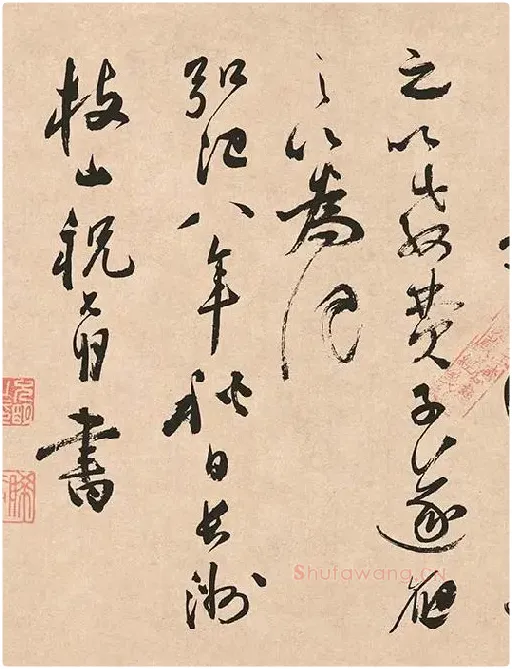 之以費子遂
之以為
弘治八年秋日長洲
枝山祝允明書
Shufawang.CN